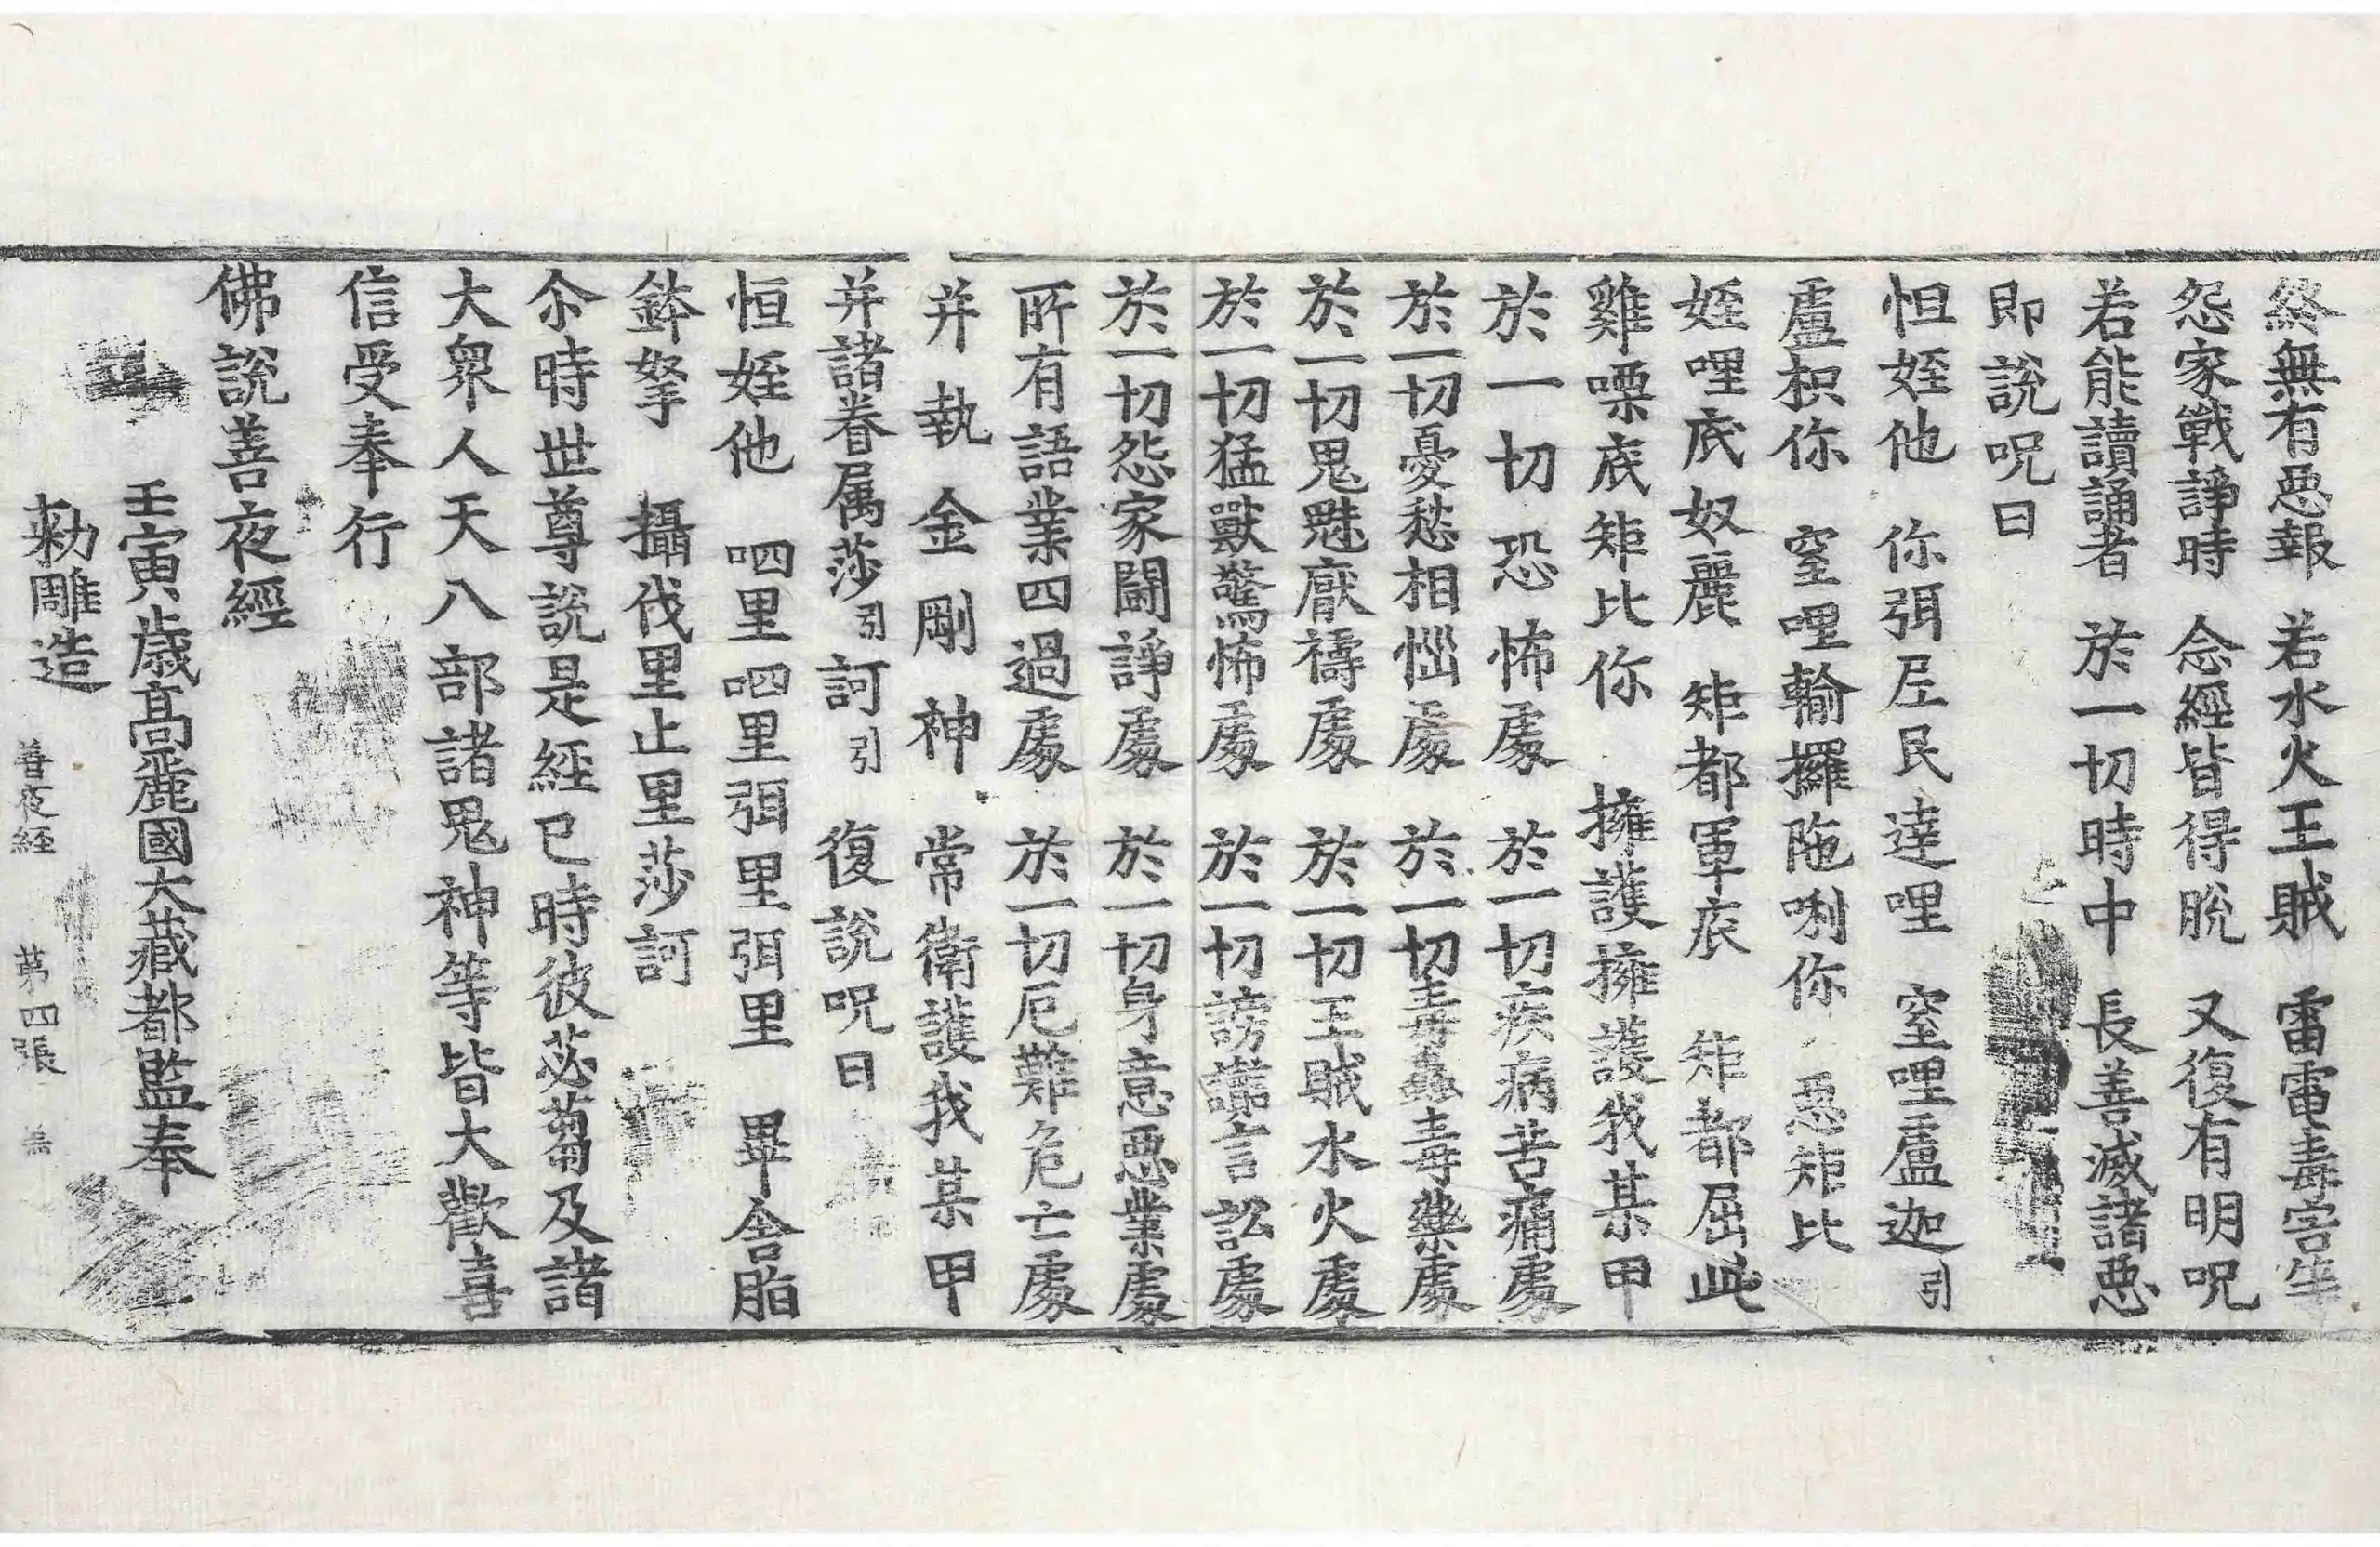 終無有惡報　若水火王賊　雷電毒害坐
怨家戰諍時　念經皆得脫　又復有明呪
若能讀誦者　於一切時中　長善滅諸惡
即說呪曰
怛姪他　你弭𡰱民達哩　窒哩盧迦引
盧枳你　窒哩輸攞陁唎你　惡矩比
姪哩底奴麗　矩都軍底　矩都屈𠯗
雞㗚底矩比你　擁護擁護我某甲
於一切恐怖處　於一切疾病苦痛處
於一切憂愁相惱處　於一切毒蟲毒藥處
於一切鬼魅厭禱處　於一切王賊水火處
於一切猛獸驚怖處　於一切謗讟言訟處
於一切怨家鬪諍處　於一切身意惡業處
所有語業四過處　於一切厄難危亡處
并執金剛神　常衛護我某甲
并諸眷属莎引訶引　復說呪曰
怛姪他　呬里呬里弭里弭里　畢舍脂
鉢拏　攝伐里止里莎訶
尒時世尊說是經已時彼苾蒭及諸
大衆人天八部諸鬼神等皆大歡喜
信受奉行
佛說善夜經
壬寅歲高麗國大藏都監奉
勑雕造
善夜經　第四張　善